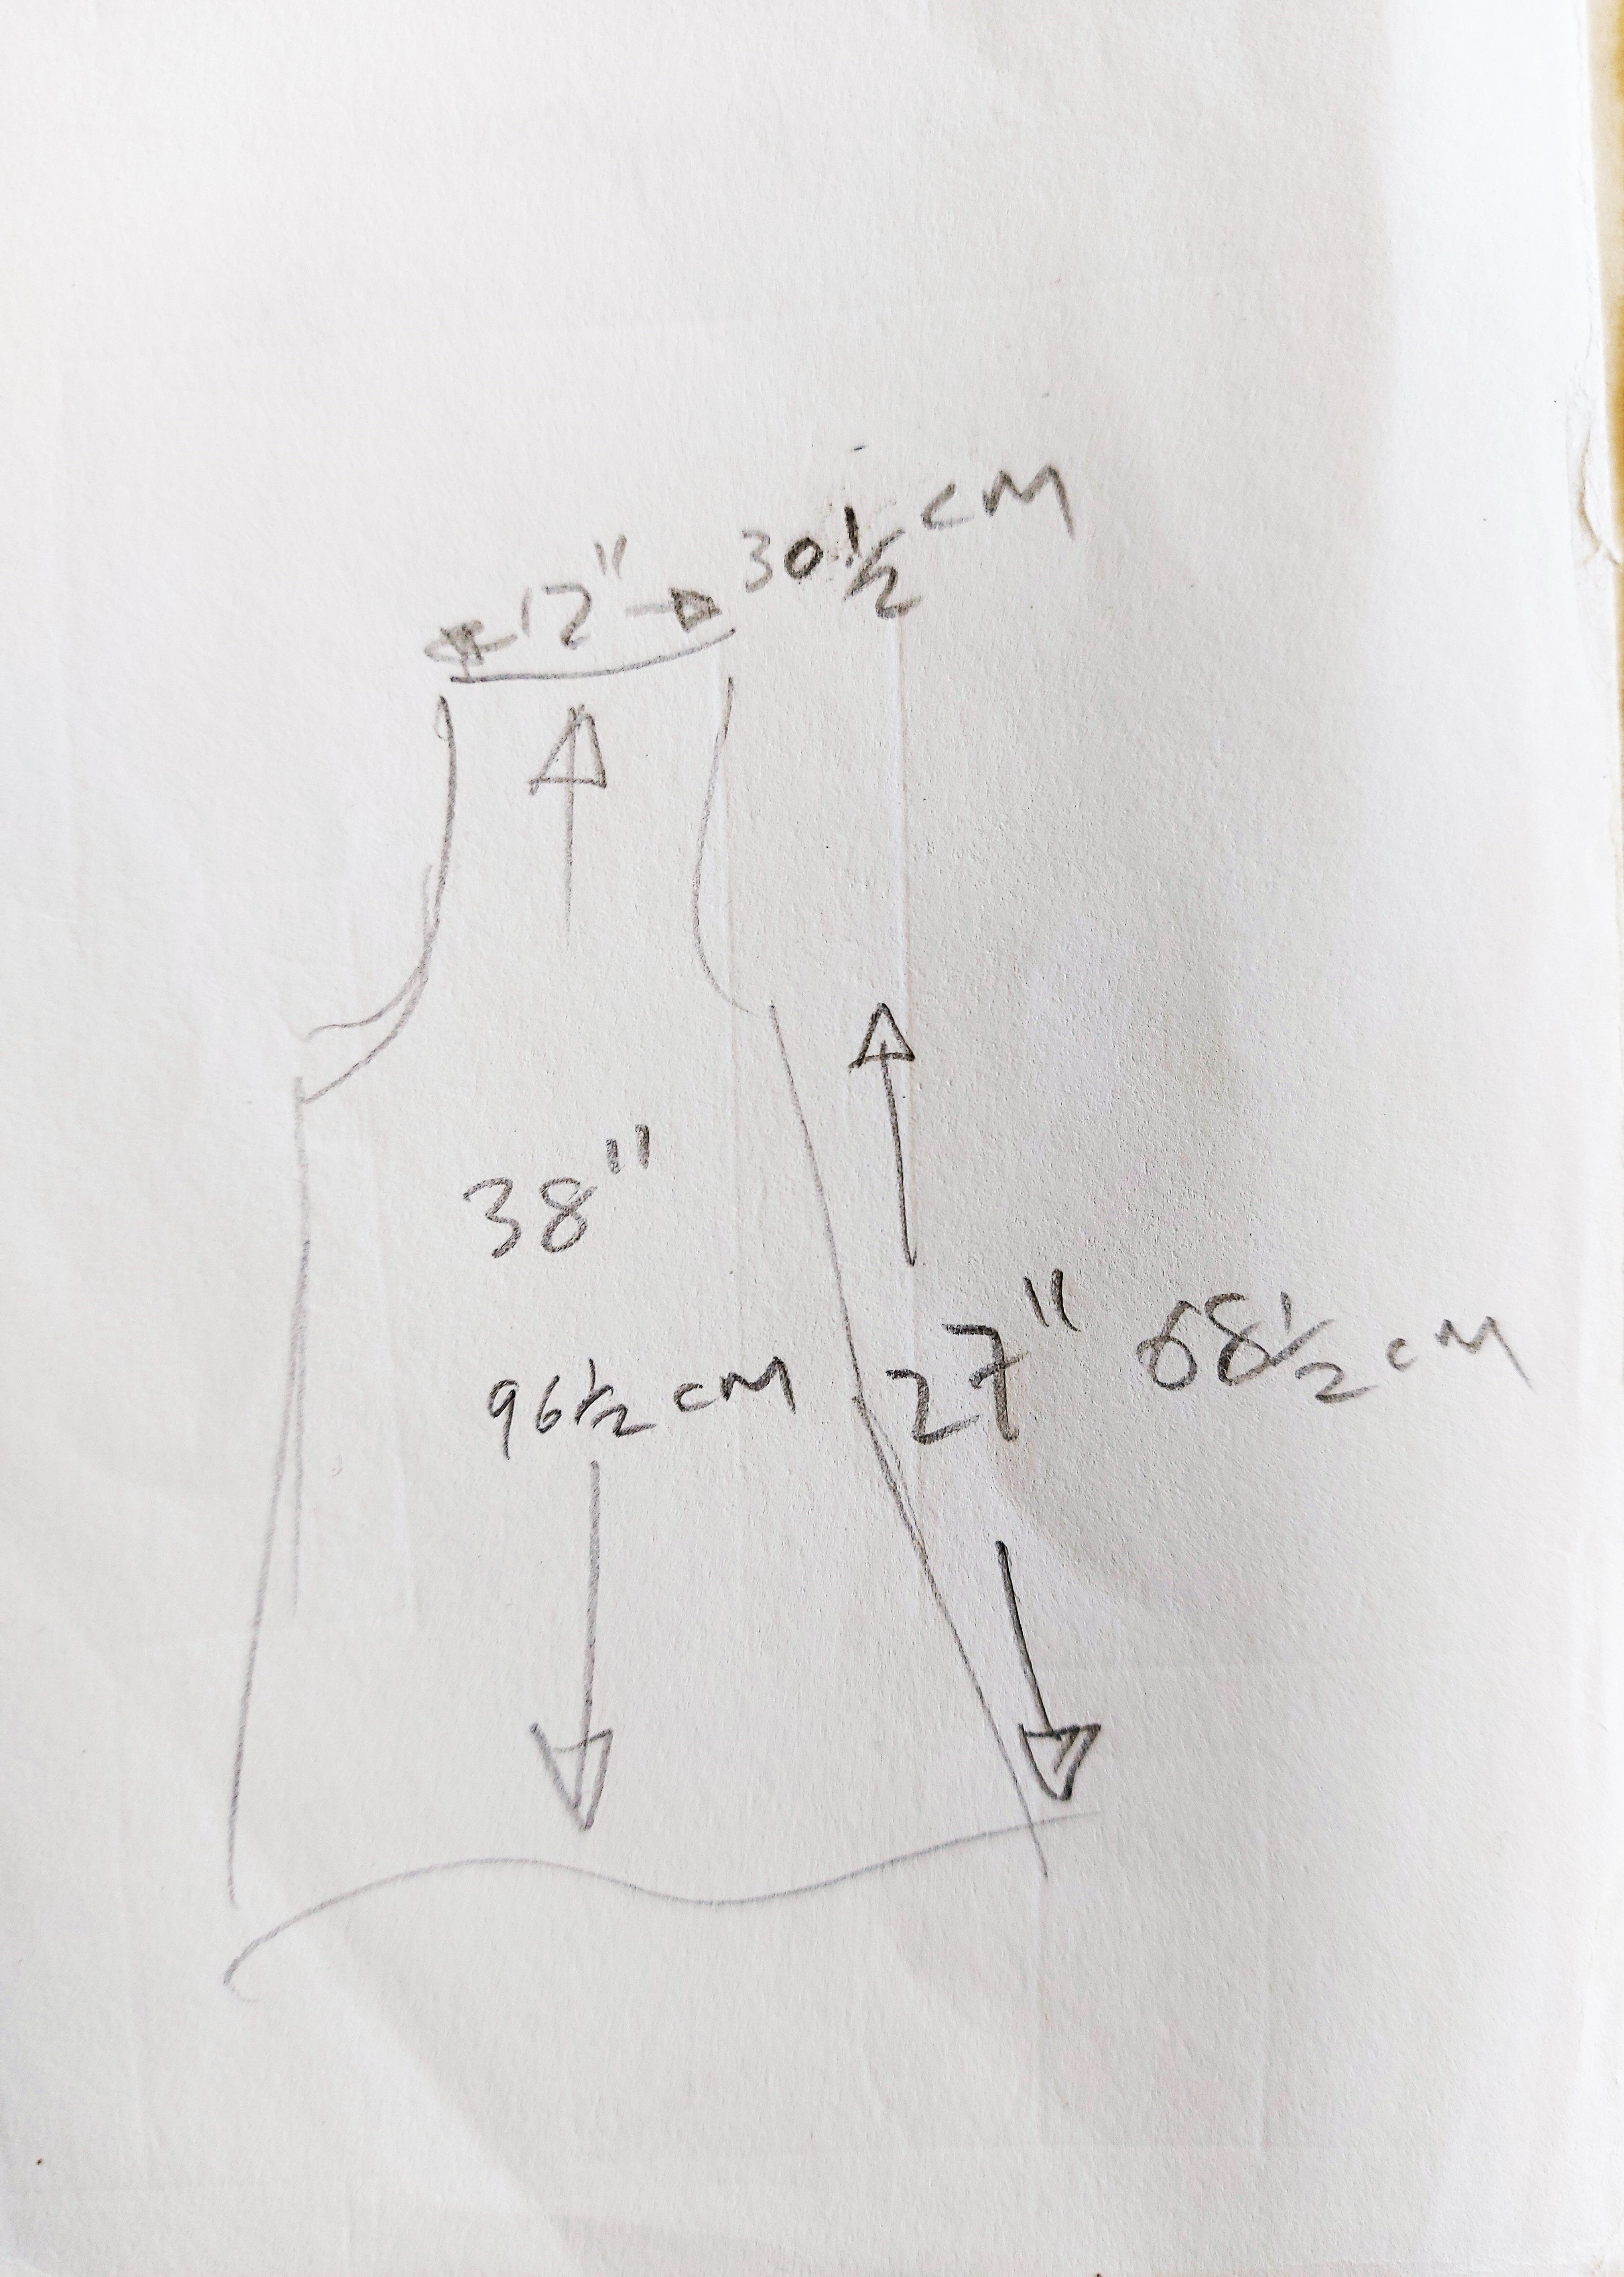 12" 30 1/2 cm
38"
96 1/2 cm
27" 68 1/2 cm